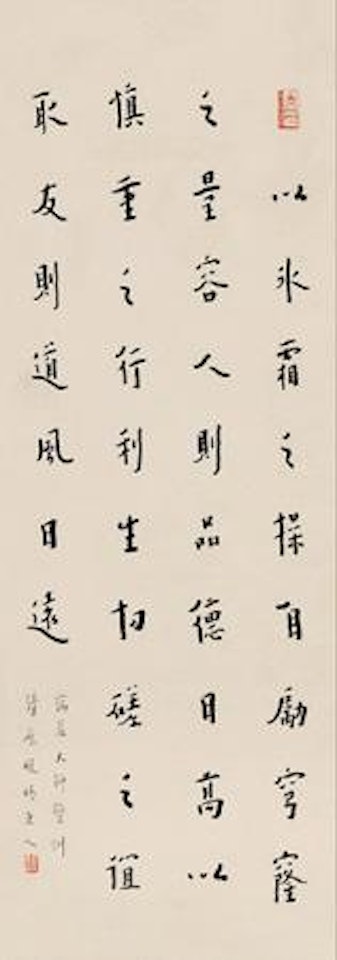 以氷霜之操自勵穹窿
之量容人則品德日高以
慎重之行利生切磋之誼
取友則道風日遠
蕅益大師警訓